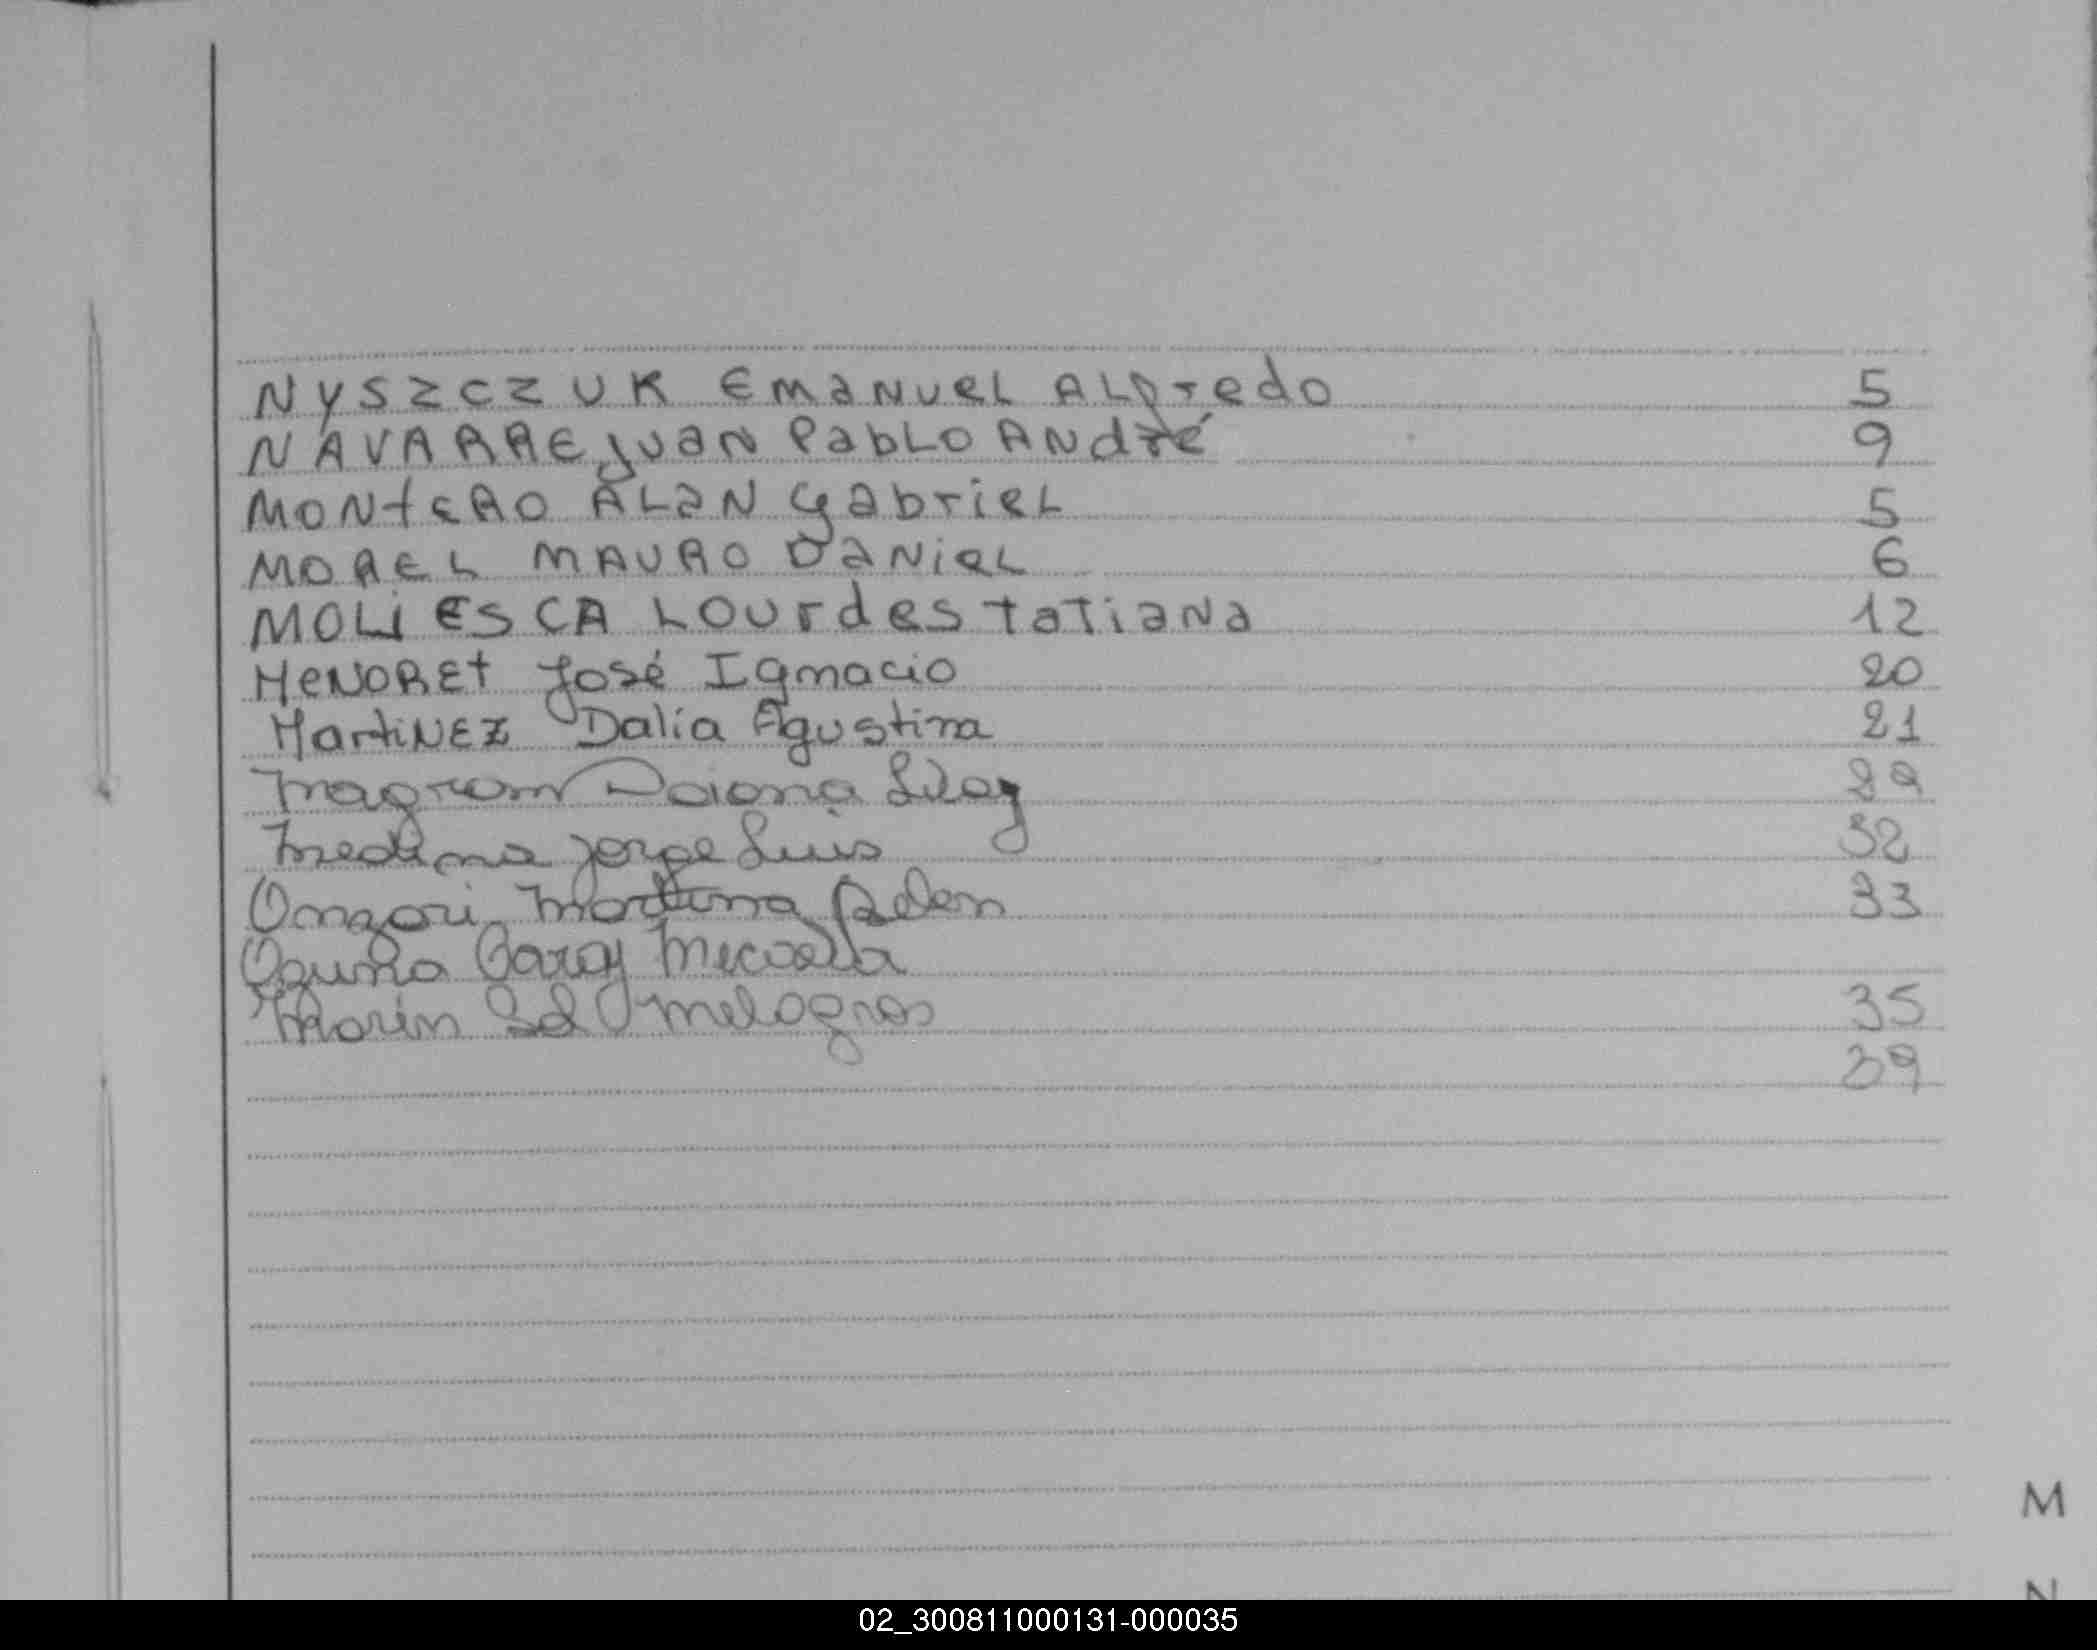 NYSZCZUK EMANUEL ALFredo 5
NAVARRE JUAN PabLO ANdré 9
MONtERO ALAN GabrieL 5
MOREL MAURO DANieL 6
MOLiESCA LOUrdes TATIANA 12
MeNORET José Ignacio 20
MartiNEZ Dalia Agustina 21
Daiana 29
Medina Jorge Luis 32
Ongori Martina Belen 33
Garay Micaela
Marin Sol Milagros 35
39
M
N
02_300811000131-000035